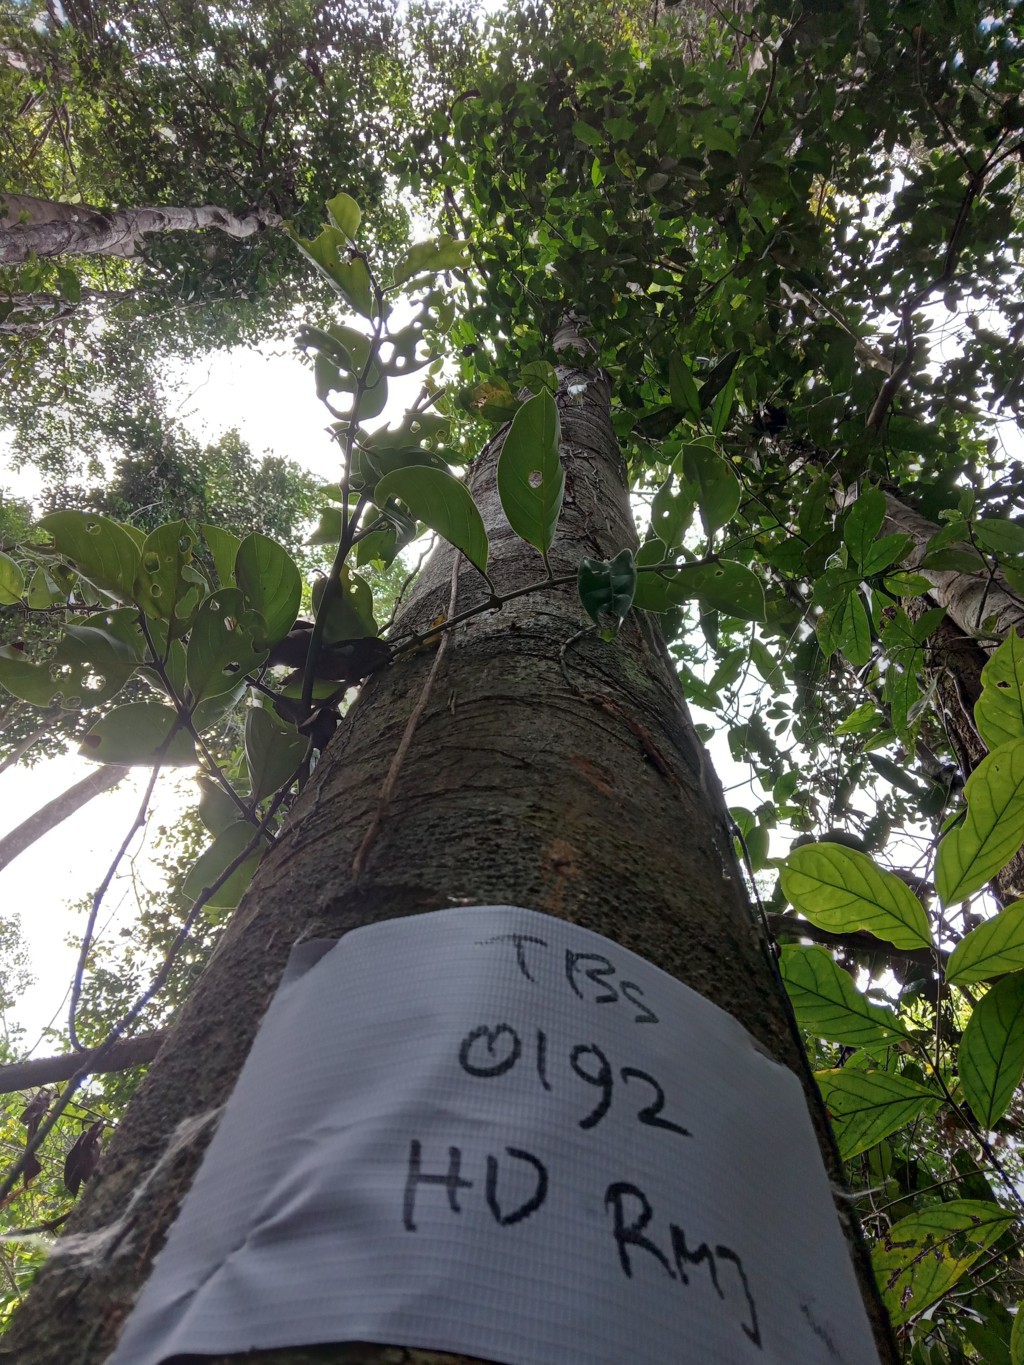 TBS
0192
HD RMJ